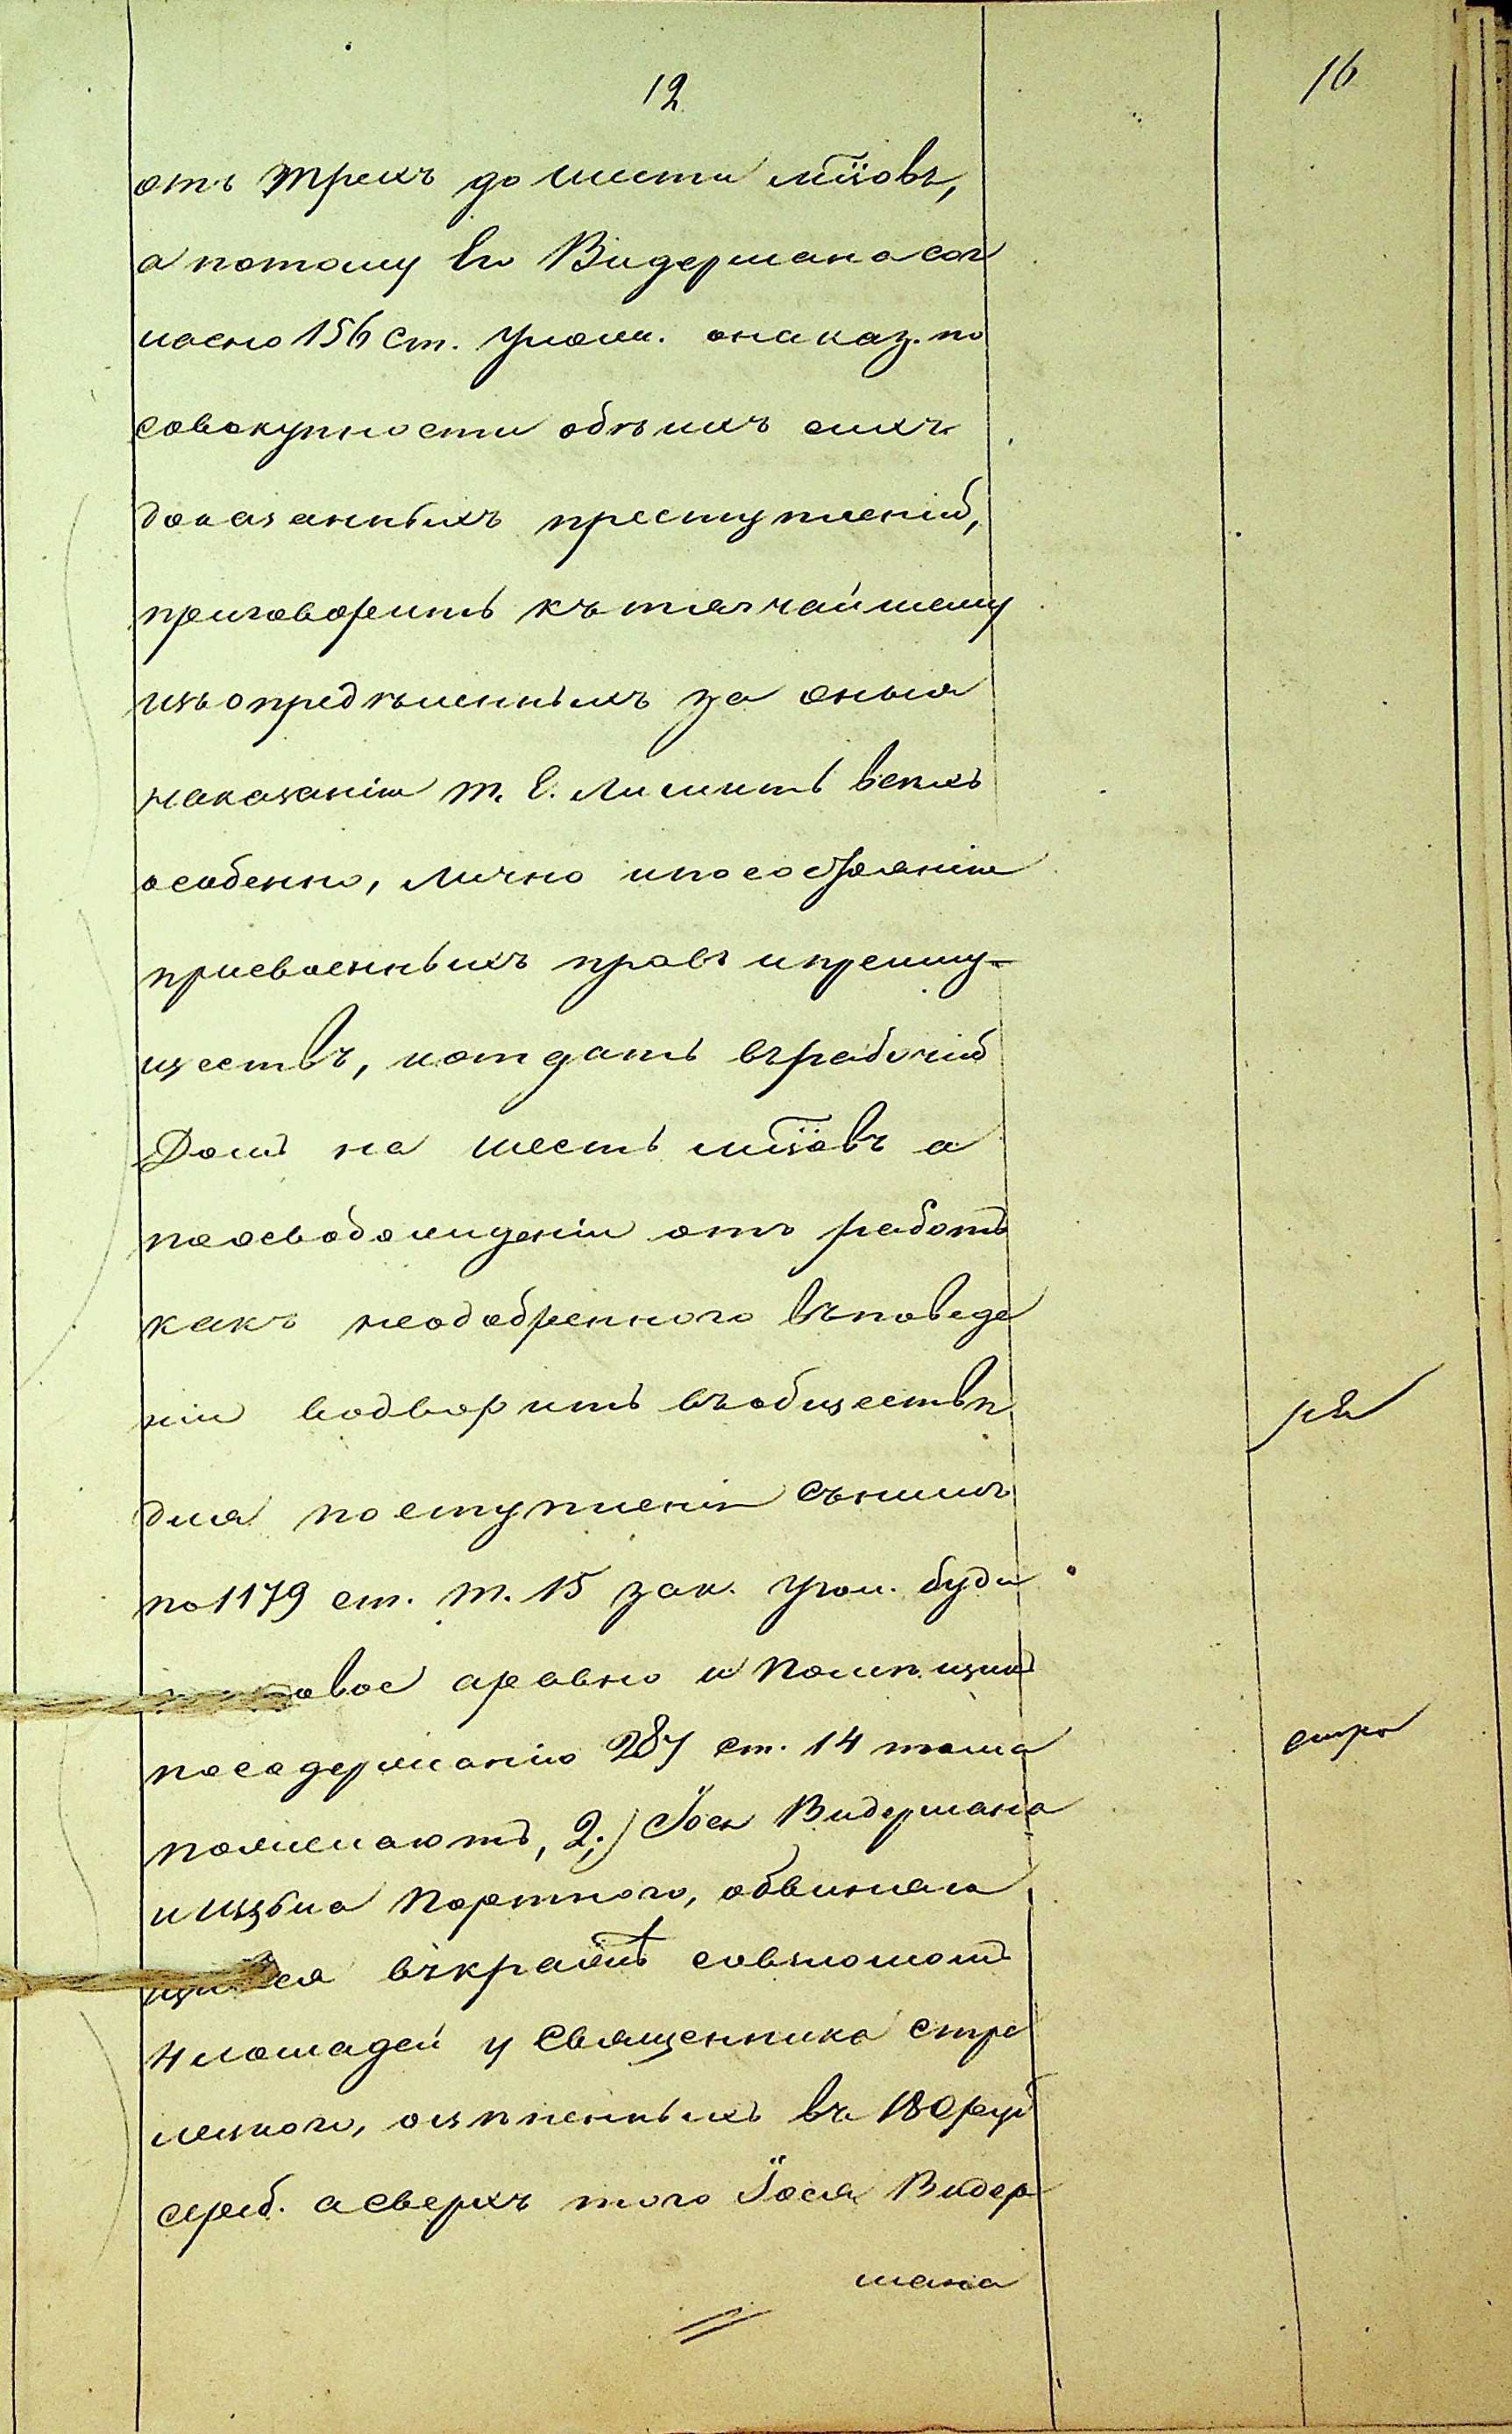 12
16
отъ трехъ до шести мцовъ,
а потому Его Видермана сог
ласно 156 ст. улож. онаказ. по
совокупности обѣихъ сихъ
доказанныхъ преступленій,
приговорить къ тягчайшему
изъ опредѣленныхъ за оныя
наказанію т. е. лишить всѣхъ
особенно, лично и по состоянію
присвоенныхъ правъ и преиму-
ществъ, и отдать въ рабочій
Домъ на шесть мцовъ а
по освобожденіи отъ работъ
какъ неодобреннаго въ поведе
ніи водворить въ обществѣ
для поступленія съ нимъ
по 1179 ст. т. 15 зак. угол. буде
таковое а равно и помѣщикъ
по содержанію 287 ст. 14 тома
пожелаютъ, 2.) Іося Видермана
и Ицька Портнаго, обвиняю
щихся въ кражѣ со взломомъ
4 лошадей у Священника Стре
лецкаго, оцѣненныхъ въ 180 руб
сереб. а сверхъ того Іося Видер
мана